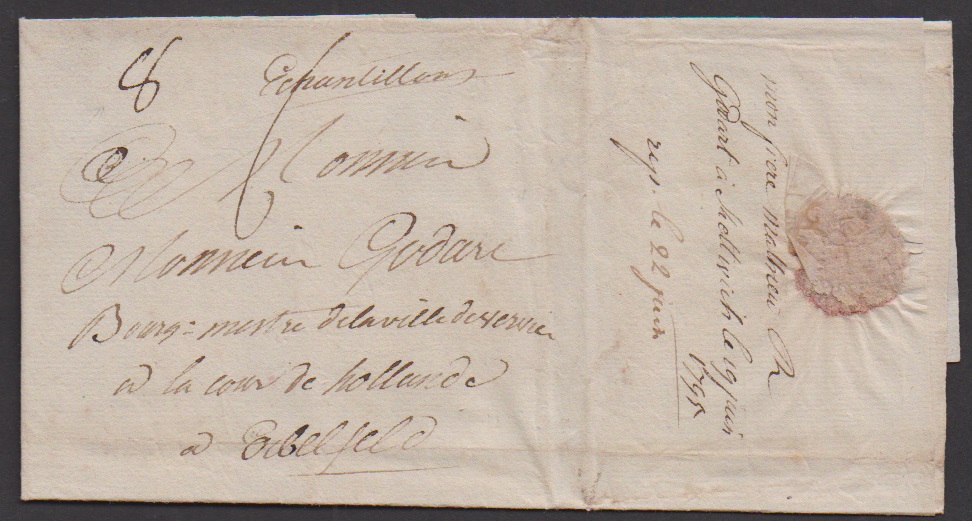 8 Echantillons
Monsieur
Monsieur Godart
Bourg=mestre de la ville de verviers
a la cour de hollande
a Elbelfeld
mon frere Mathieu R
Godart à le 19 juin
1795
rep. le 22 juin